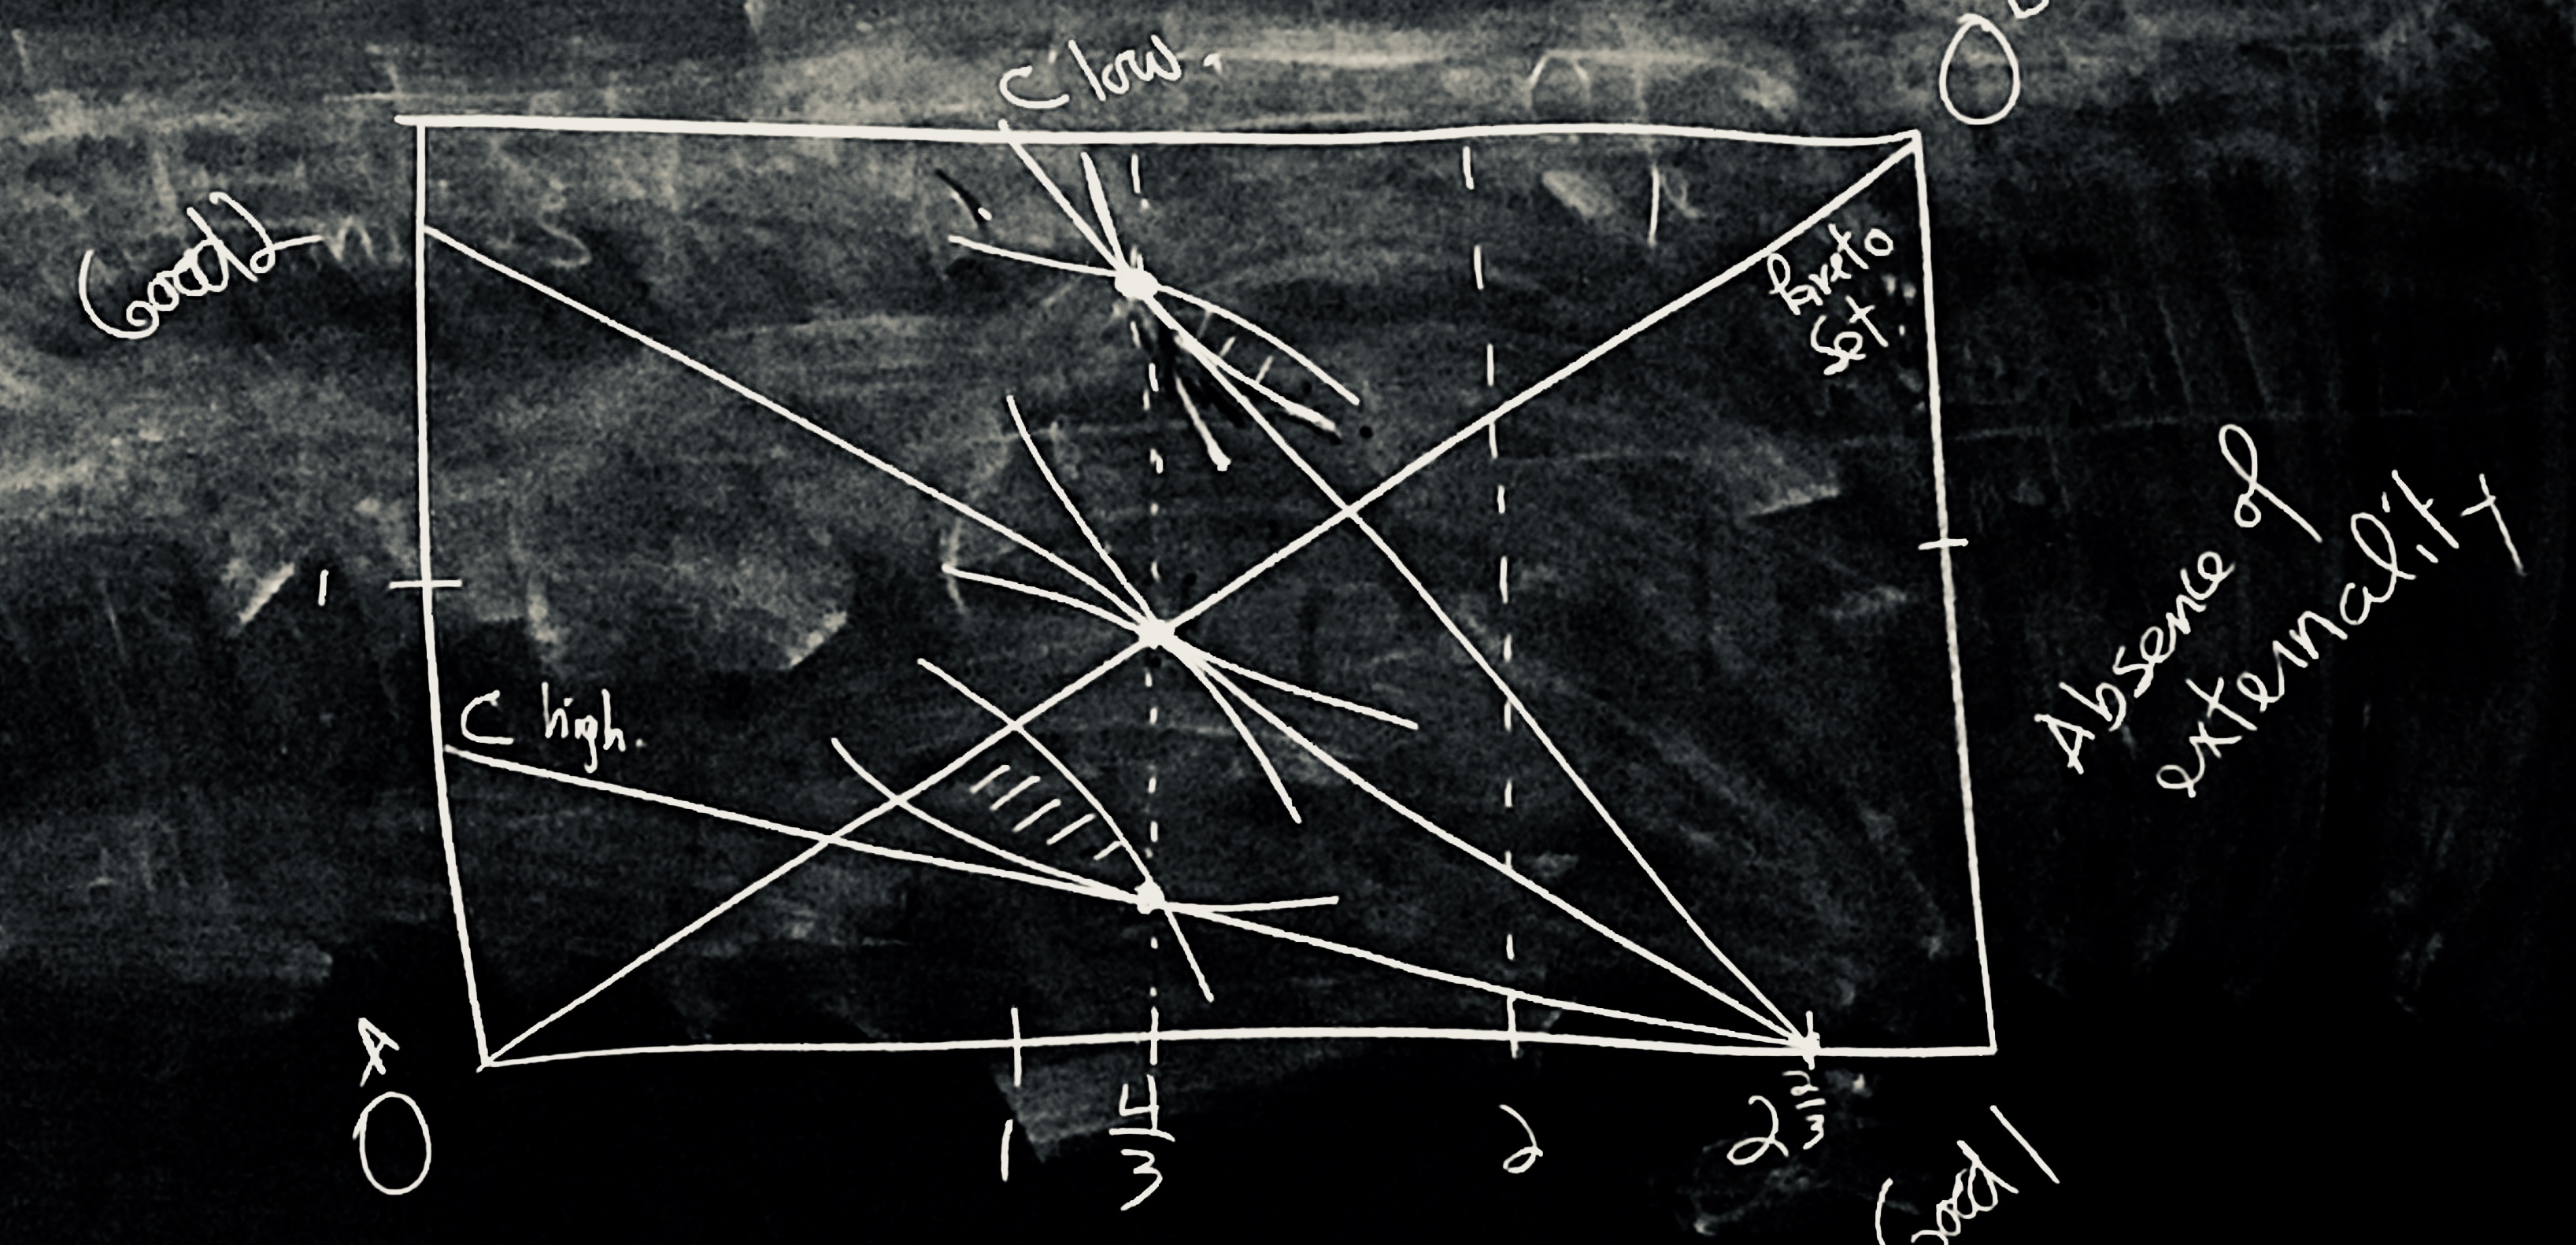 C low.
O
Good 2
Pareto
Set.
1
C high.
Absence of
externality
A
O
1
4
3
2
2 2/3
Good 1